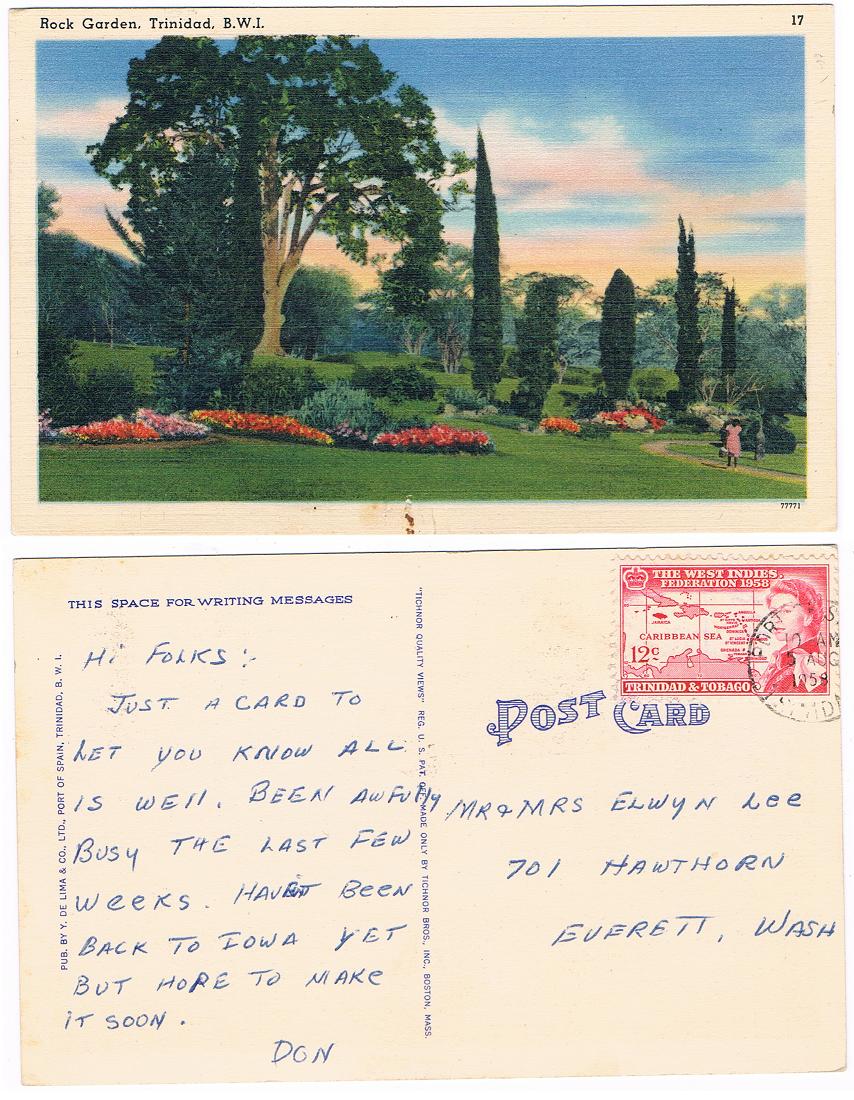 Rock Garden, Trinidad, B.W.I.
17
77771
THIS SPACE FOR WRITING MESSAGES
HI FOLKS:
JUST A CARD TO
LET YOU KNOW ALL
IS WELL. BEEN AWFULLY
BUSY THE LAST FEW
WEEKS. HAVEN'T BEEN
BACK TO IOWA YET
BUT HOPE TO MAKE
IT SOON.
DON
PUB. BY Y. DE LIMA & CO., LTD., PORT OF SPAIN, TRINIDAD, B. W. I.
"TICHNOR QUALITY VIEWS" REG. U. S. PAT. OFF. MADE ONLY BY TICHNOR BROS., INC., BOSTON, MASS.
THE WEST INDIES
FEDERATION 1958
JAMAICA
CARIBBEAN SEA
GRENADA
12c
TRINIDAD & TOBAGO
PORT
AM
5 AUG
1958
POST CARD
MR & MRS ELWYN LEE
701 HAWTHORN
EVERETT, WASH